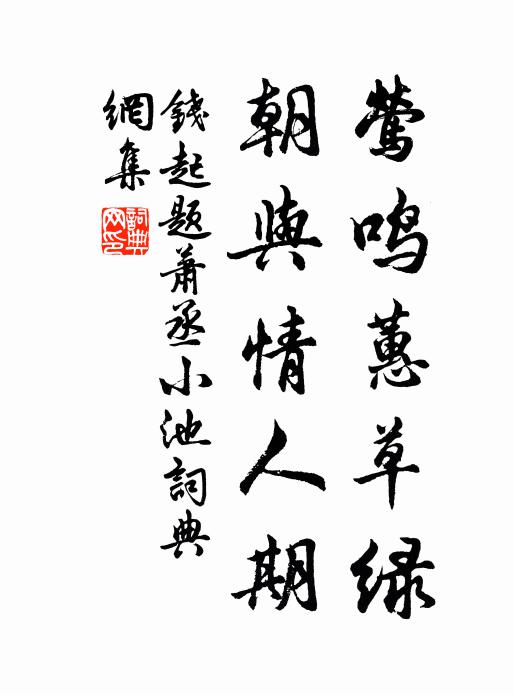 莺鸣蕙草绿
朝與情人期
錢起題蕭丞小池詞典
網集
詞典网印